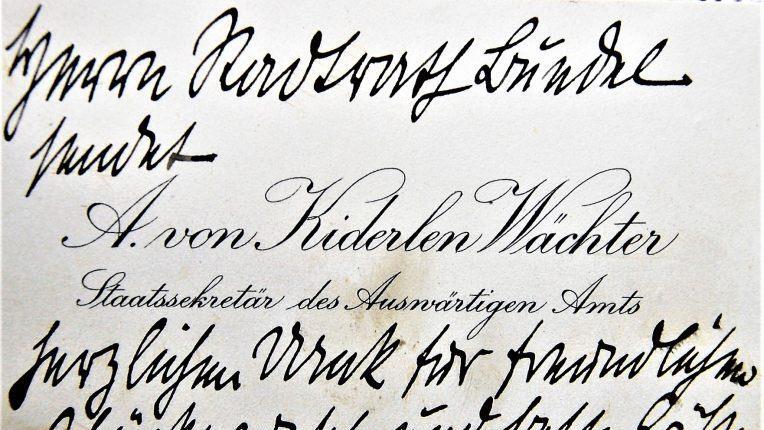 Herrn Stadtrath Bündel
sendet
A. von Kiderlen Wächter
Staatssekretär des Auswärtigen Amts
herzlichen Dank für freundlichen